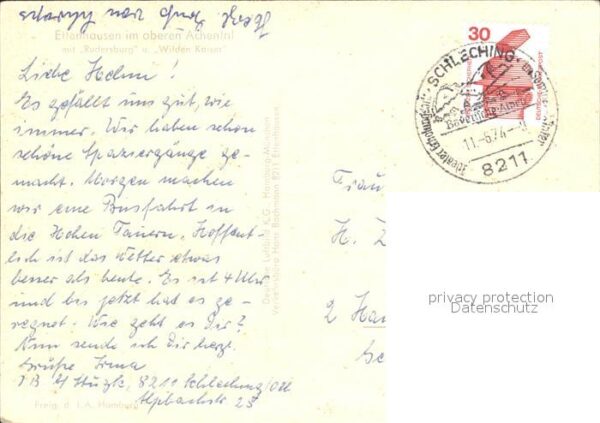 Herzl. Gruß von
Ettenhausen im oberen Achental
mit "Rudersburg" u. "Wilden Kaiser"
Liebe Helma!
Es gefällt uns gut, wie
immer. Wir haben schon
schöne Spaziergänge ge-
macht. Morgen machen
wir eine Busfahrt in
die Hohen Tauern. Hoffent-
lich ist das Wetter etwas
besser als heute. Es ist 4 Uhr
und bis jetzt hat es ge-
regnet. Wie geht es Dir?
Nun sende ich Dir herzl.
Grüße Irma
8211 Schleching/Obb
Alpbachstr 25
Freig. d. L.A. Hamburg
Deutscher Luftbild K.G., Hamburg-München
Verkehrsbüro Hans Bachmann 8211 Ettenhausen
30
DEUTSCHE BUNDESPOST
SCHLECHING
11.-6.74
8211
Frau
H. Z
2 Ham
privacy protection
Datenschutz